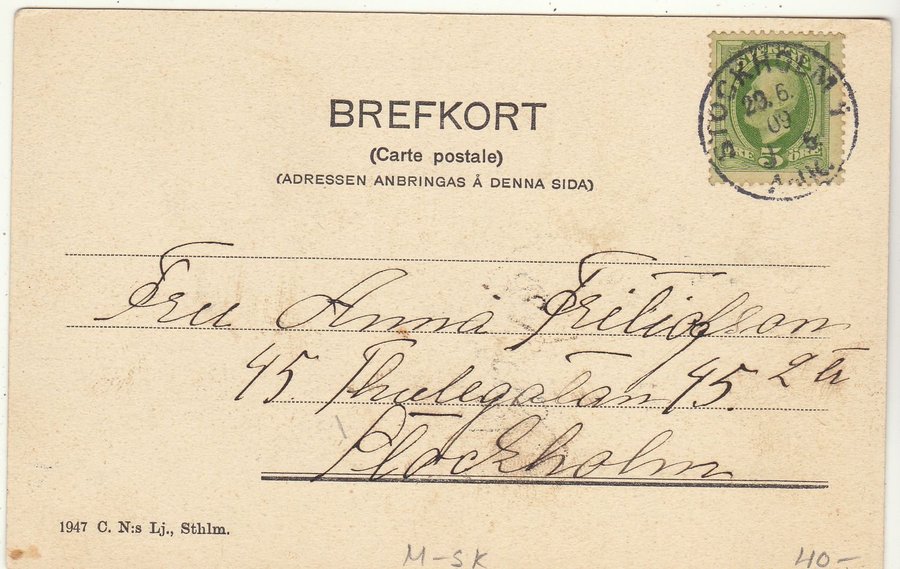 BREFKORT
(Carte postale)
(ADRESSEN ANBRINGAS Å DENNA SIDA)
STOCKHOLM 1
23. 6.
03
5 ÖRE
Fru Anna Fritiofson
45 Thulegatan 45. 2 tr
Stockholm
1947 C. N:s Lj., Sthlm.
M-SK
40-